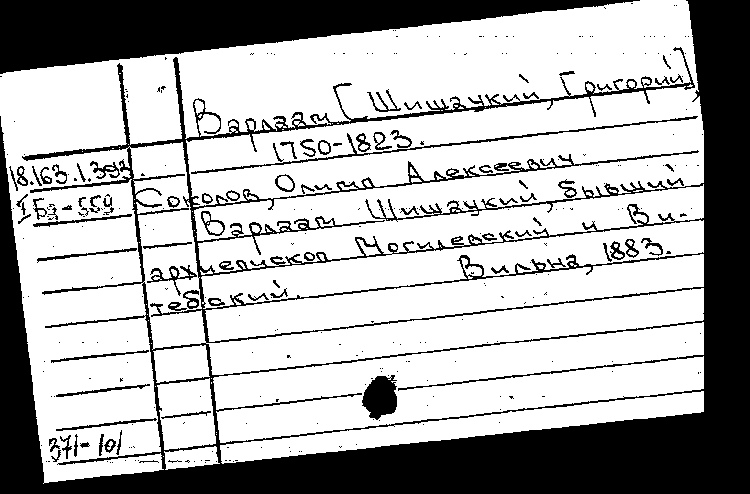 Варлаам [Шишацкий, Григорий],
1750-1823.
18.163.1.393.
Соколов, Олимп Алексеевич
IБэ-559
Варлаам Шишацкий, бывший
архиепископ Могилевский и Ви-
тебский. Вильна, 1883.
371-101